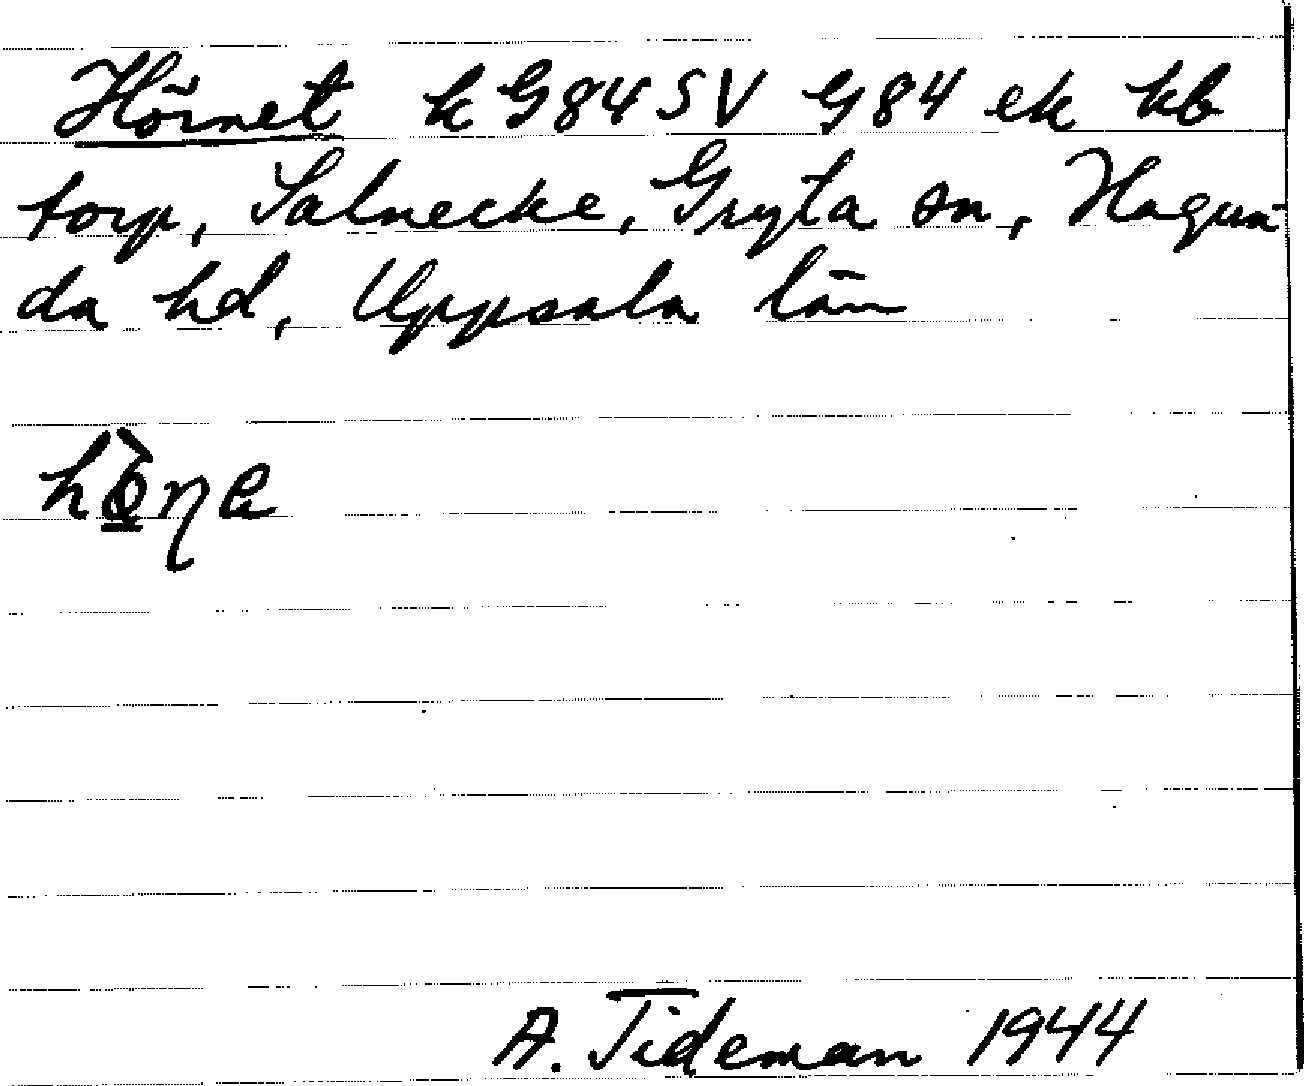 Hörnet k G84SV G84 ek kb
torp, Salnecke, Gryta sn, Hagun-
da hd, Uppsala län
A. Tideman 1944